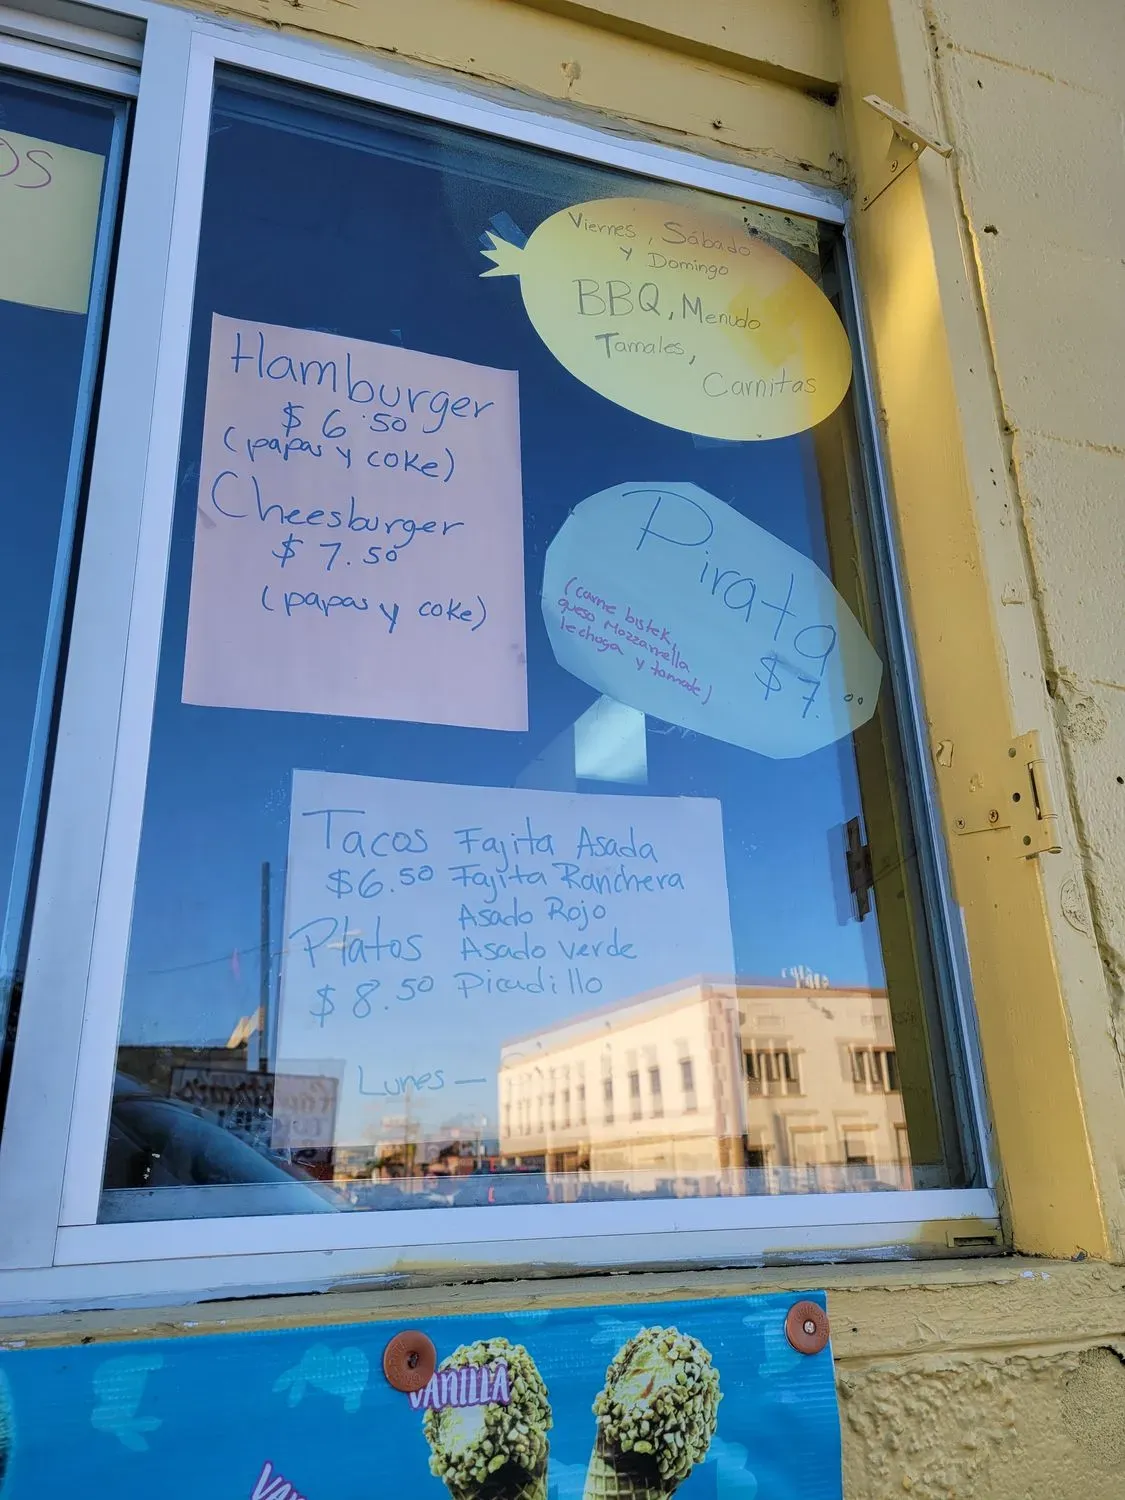 OS
Viernes, Sábado
y Domingo
BBQ, Menudo
Tamales,
Carnitas
Hamburger
$ 6.50
(papas y coke)
Cheesburger
$ 7.50
(papas y coke)
Pirata
$ 7.00
(carne bistek,
queso Mozzarrella
lechoga y tomate)
Tacos Fajita Asada
$6.50 Fajita Ranchera
Asado Rojo
Platos Asado verde
$ 8.50 Picadillo
Lunes —
VANILLA
VAN